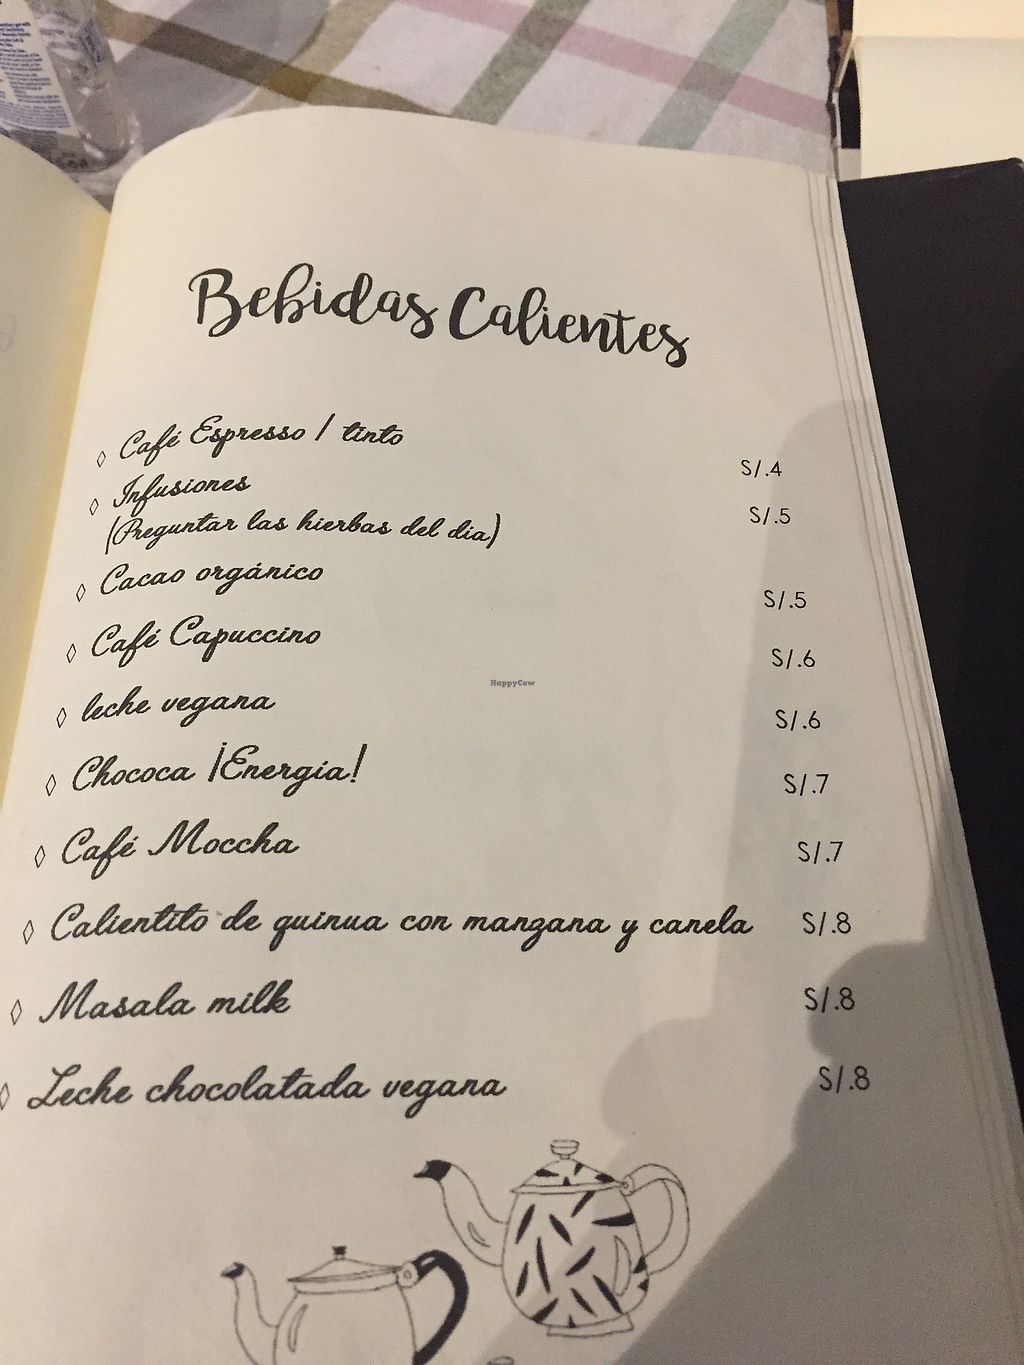 Bebidas Calientes
◊ Café Espresso / tinto S/.4
◊ Infusiones S/.5
(Preguntar las hierbas del dia)
◊ Cacao orgánico S/.5
◊ Café Capuccino S/.6
◊ leche vegana S/.6
◊ Chococa ¡Energía! S/.7
◊ Café Moccha S/.7
◊ Calientito de quinua con manzana y canela S/.8
◊ Masala milk S/.8
◊ Leche chocolatada vegana S/.8
HappyCow